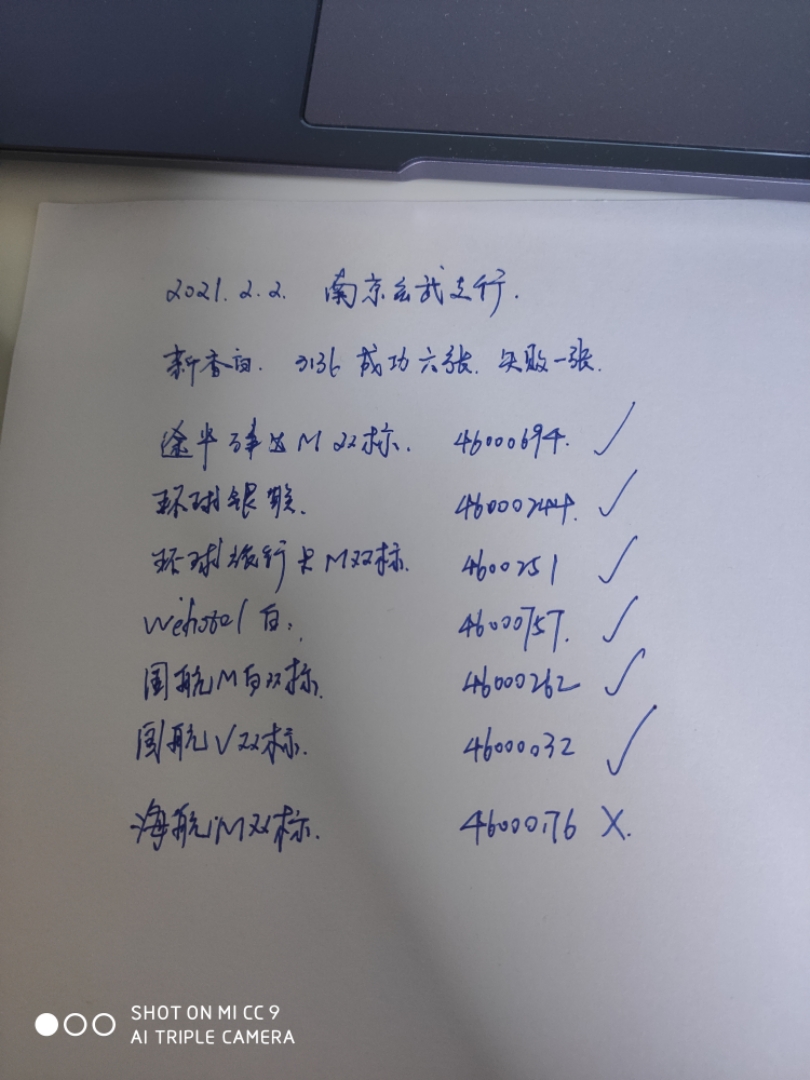 2021.2.2. 南京玄武支行.
新香白. 3136 成功六张. 失败一张.
途牛 M 双标. 46000694. ✓
环球银联. 46000244. ✓
环球旅行卡M双标. 4600251 ✓
wehotel 白. 46000757. ✓
国航M白双标. 46000262 ✓
国航V双标. 46000032 ✓
海航M双标. 46000176 X.
SHOT ON MI CC 9
AI TRIPLE CAMERA